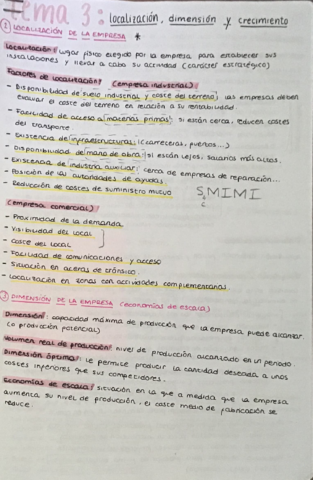 Tema 3: localización, dimensión y crecimiento
① LOCALIZACIÓN DE LA EMPRESA *
Localización: lugar físico elegido por la empresa para establecer sus
instalaciones y llevar a cabo su actividad (carácter estratégico)
Factores de localización: (empresa industrial)
- Disponibilidad de suelo industrial y coste del terreno: las empresas deben
evaluar el coste del terreno en relación a su rentabilidad.
- Facilidad de acceso a materias primas: si están cerca, reducen costes
del transporte.
- Existencia de infraestructuras (carreteras, puertos...)
- Disponibilidad de mano de obra: si están lejos, salarios más altos.
- Existencia de industria auxiliar: cerca de empresas de reparación...
- Posición de las autoridades de ayudas.
- Reducción de costes de suministro mutuo
SMIMI
(empresa comercial):
- Proximidad de la demanda
- Visibilidad del local
- Coste del local
- Facilidad de comunicaciones y acceso
- Situación en aceras de tránsito.
- Localización en zonas con actividades complementarias.
② DIMENSIÓN DE LA EMPRESA (economías de escala)
Dimensión: capacidad máxima de producción que la empresa puede alcanzar.
(o producción potencial)
Volumen real de producción: nivel de producción alcanzado en un periodo.
Dimensión óptima: le permite producir la cantidad deseada a unos
costes inferiores que sus competidores.
Economías de escala: situación en la que a medida que la empresa
aumenta su nivel de producción, el coste medio de fabricación se
reduce.